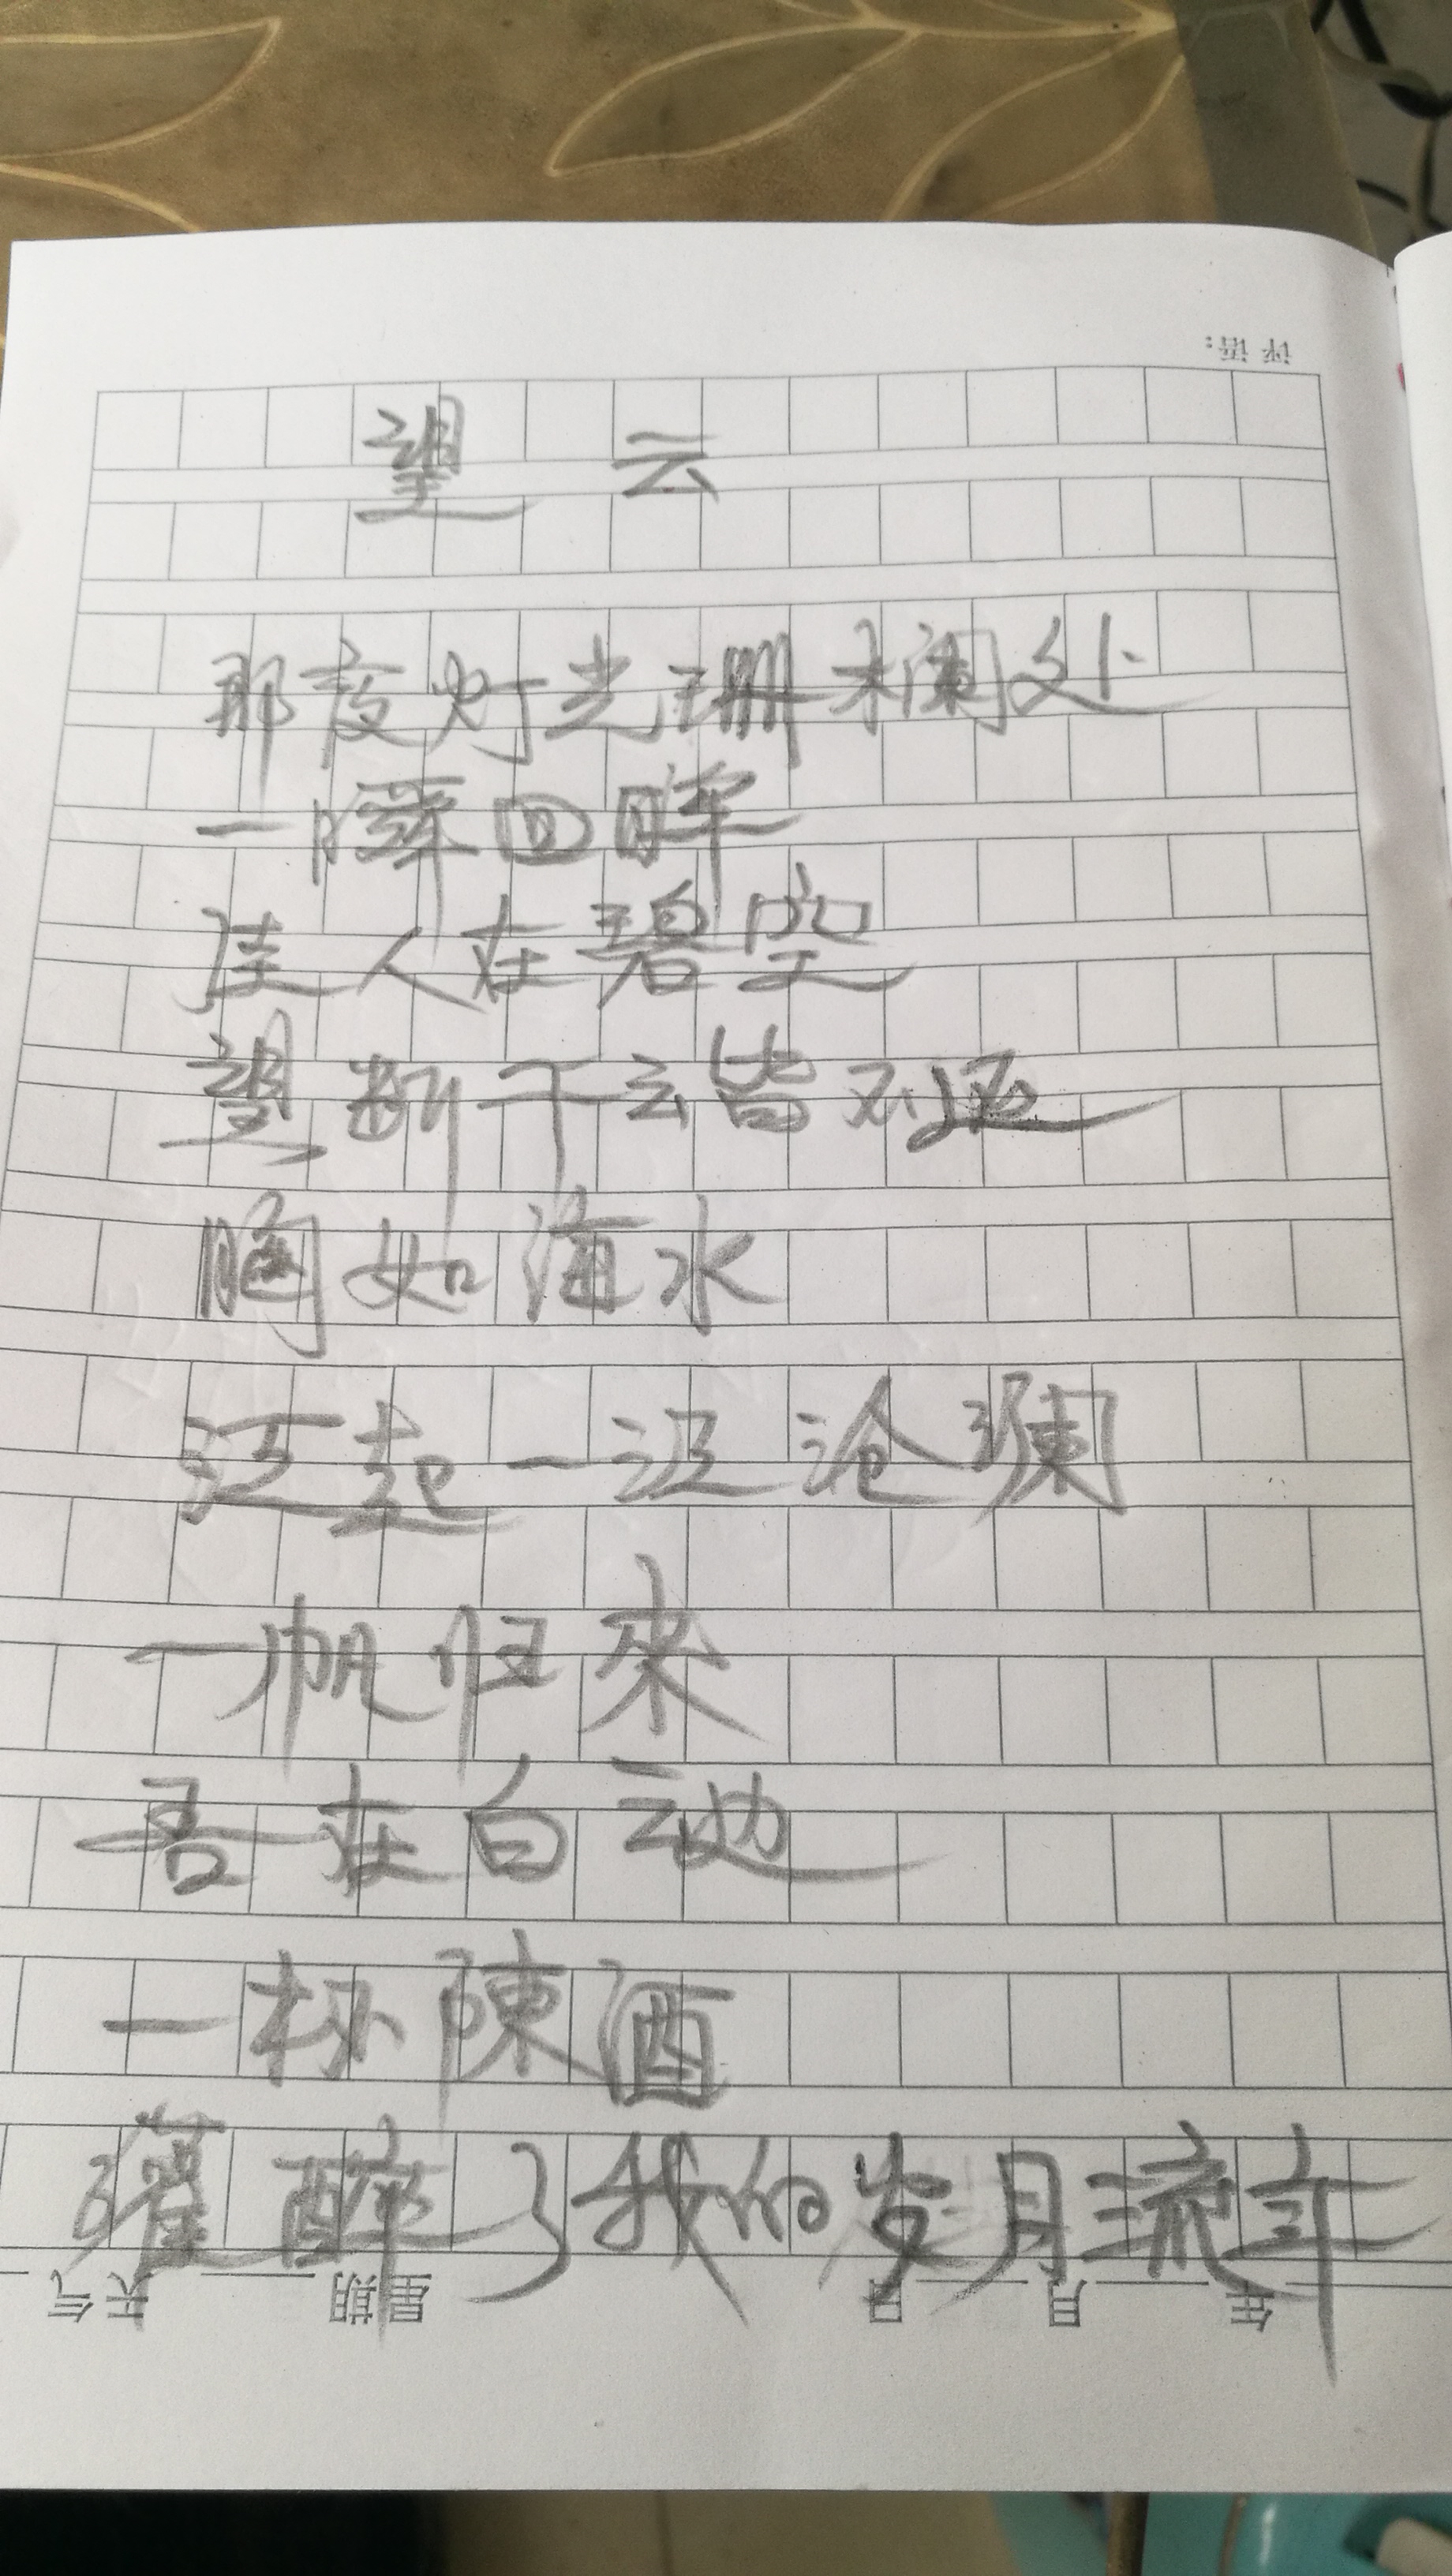 评语：
望云
那夜灯光珊栏处
一瞬回眸
佳人在碧空
望断千云皆不还
胸如海水
泛起一泛沧澜
一帆归来
吾在白云边
一杯陳酒
灌醉了我的岁月流年
年 月 日 星期 天气